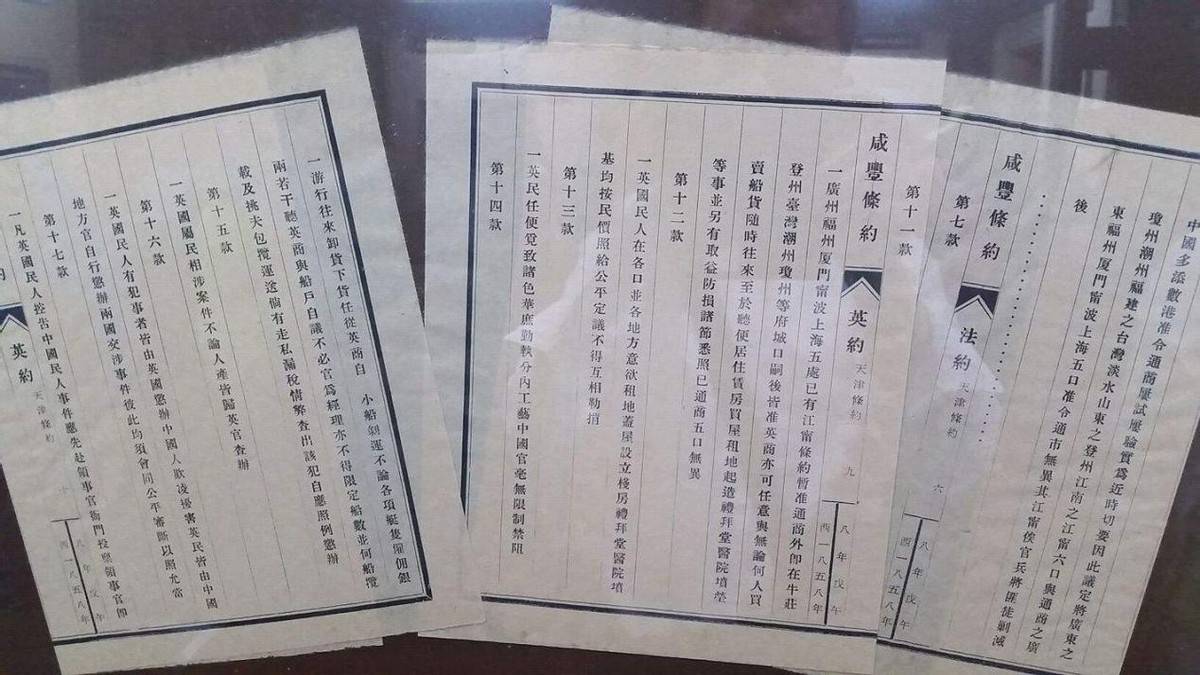 中國多添數港准令通商屢試屢驗實爲近時切要因此議定將廣東之
瓊州潮州福建之台灣淡水山東之登州江南之江甯六口與通商之廣
東福州厦門甯波上海五口准令通市無異其江甯俟官兵將匪徒剿滅
後
第七款
咸豐條約
法約
天津條約
六
八年戊午
西一八五八年
第十一款
一廣州福州厦門甯波上海五處已有江甯條約暫准通商外卽在牛莊
登州臺灣潮州瓊州等府城口嗣後皆准英商亦可任意與無論何人買
賣船貨隨時往來至於聽便居住賃房買屋租地起造禮拜堂醫院墳塋
等事並另有取益防損諸節悉照已通商五口無異
第十二款
一英國民人在各口並各地方意欲租地蓋屋設立棧房禮拜堂醫院墳
基均按民價照給公平定議不得互相勒掯
第十三款
一英民任便覓致諸色華庶勤執分內工藝中國官毫無限制禁阻
第十四款
咸豐條約
英約
天津條約
九
八年戊午
西一八五八年
一游行往來卸貨下貨任從英商自 小船剝運不論各項艇隻雇佣銀
兩若干聽英商與船戶自議不必官爲經理亦不得限定船數並何船攬
載及挑夫包攬運送倘有走私漏稅情弊查出該犯自應照例懲辦
第十五款
一英國屬民相涉案件不論人產皆歸英官查辦
第十六款
一英國民人有犯事者皆由英國懲辦中國人欺凌擾害英民皆由中國
地方官自行懲辦兩國交涉事件彼此均須會同公平審斷以照允當
第十七款
一凡英國民人控告中國民人事件應先赴領事官衙門投禀領事官卽
約
英約
天津條約
十
八年戊午
西一八五八年